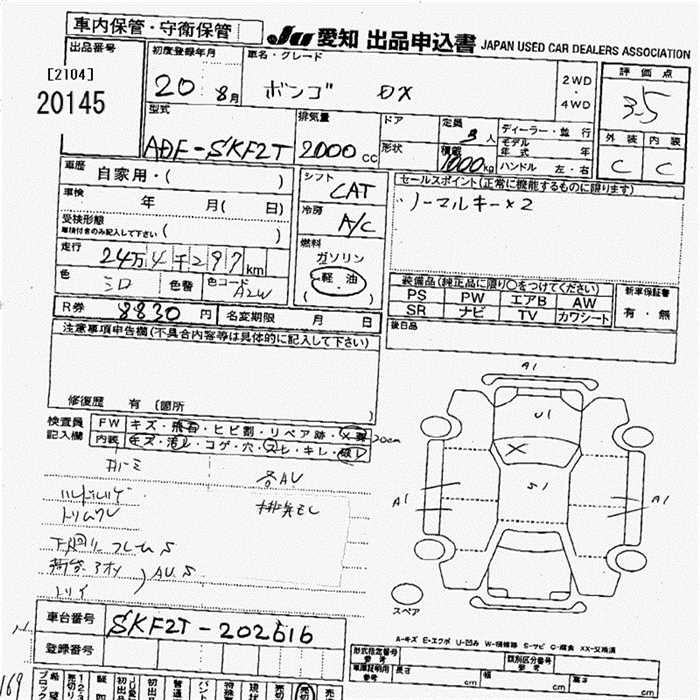 車内保管・守衛保管
JU 愛知 出品申込書 JAPAN USED CAR DEALERS ASSOCIATION
出品番号
[2104]
20145
初度登録年月
20 8月
車名・グレード
ボンゴ DX
2WD
・
4WD
評価点
3.5
外装 内装
C C
型式
ADF-SKF2T
排気量
2000 cc
ドア
形状
定員
3人
積載
1000kg
ディーラー・並行
モデル年式 年
ハンドル 左・右
車歴 自家用・( )
車検 年 月( 日)
受検形態
車検付きのみ記入して下さい ( )
走行 24万4千297km
色 シロ 色替 色コード A2W
シフト
CAT
冷房
A/C
燃料
ガソリン
軽油
セールスポイント(正常に機能するものに限ります)
ノーマルキー×2
装備品(純正品に限り○をつけてください)
PS PW エアB AW
SR ナビ TV カワシート
新車保証書
有・無
後日品
R券 8830円 名変期限 月 日
注意事項申告欄(不具合内容等は具体的に記入して下さい)
修復歴 有 (箇所 )
検査員記入欄
FW キズ・飛石・ヒビ割・リペア跡・ 20cm
内装 キズ・汚レ・コゲ・穴・スレ・キレ・破レ
各AU
AU.S
A1
U1
S1
A1 A1
A1
スペア
A-キズ E-エクボ U-凹ミ W-補修跡 S-サビ C-腐食 XX-交換済
車台番号 SKF2T-202616
登録番号
型式指定番号 参考
類別区分番号 参考
車庫証明用 参考 長さ cm 幅 cm 高さ cm
169